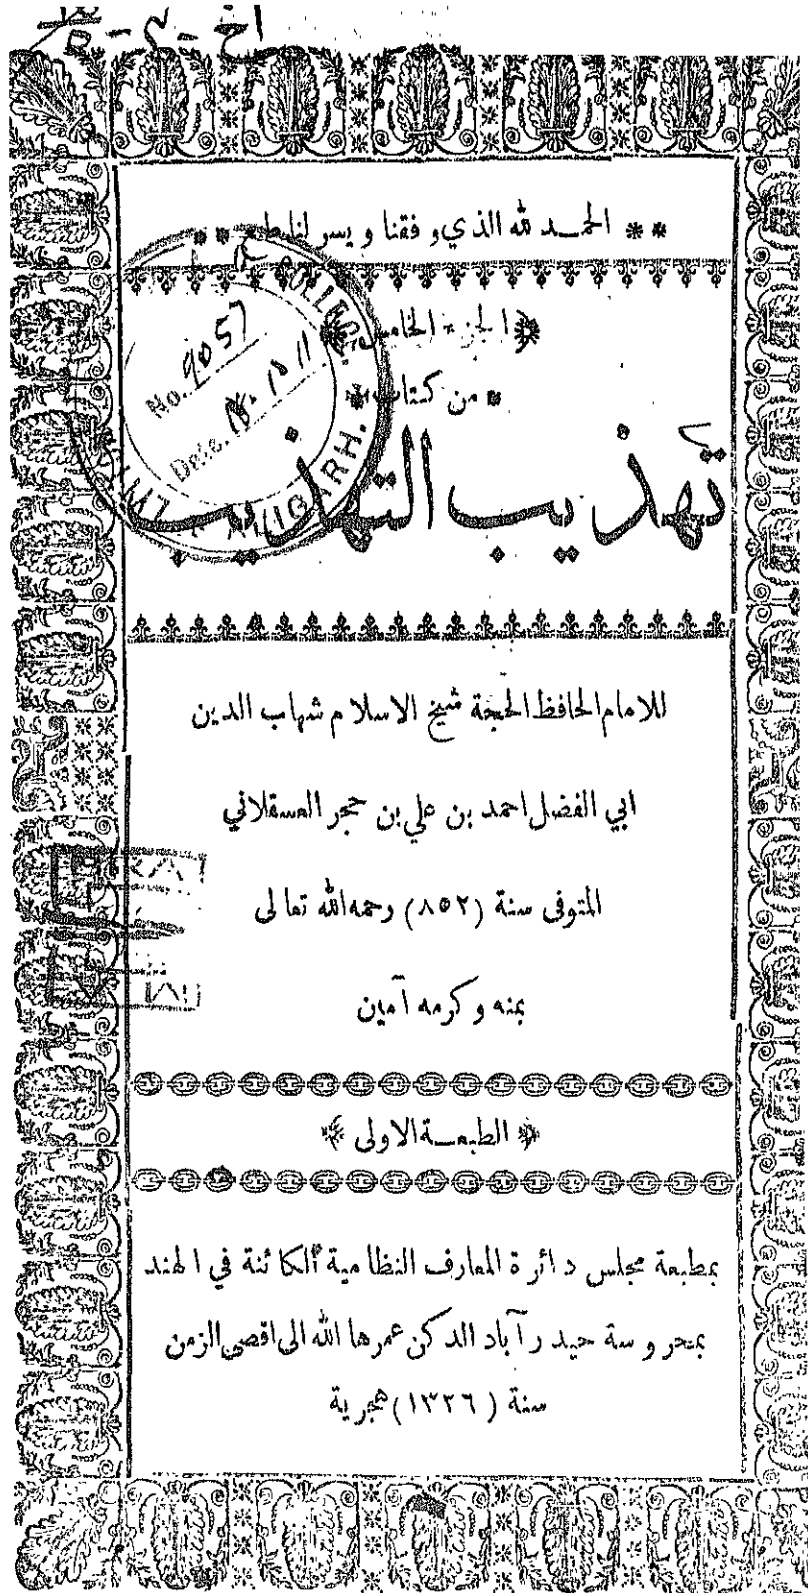 اخ - ٣ -
** الحمد لله الذي وفقنا ويسر لنا طبع **
﴿ الجزء الخامس ﴾
* من كتاب *
تهذيب التهذيب
COLLEGE
No. 9057
Date.
ALIGARH.
للامام الحافظ الحجة شيخ الاسلام شهاب الدين
ابي الفضل احمد بن علي بن حجر العسقلاني
المتوفى سنة (٨٥٢) رحمه الله تعالى
بمنه وكرمه آمين
﴿ الطبعة الاولى ﴾
بمطبعة مجلس دائرة المعارف النظامية الكائنة في الهند
بمحروسة حيدر آباد الدكن عمرها الله الى اقصى الزمن
سنة (١٣٢٦) هجرية